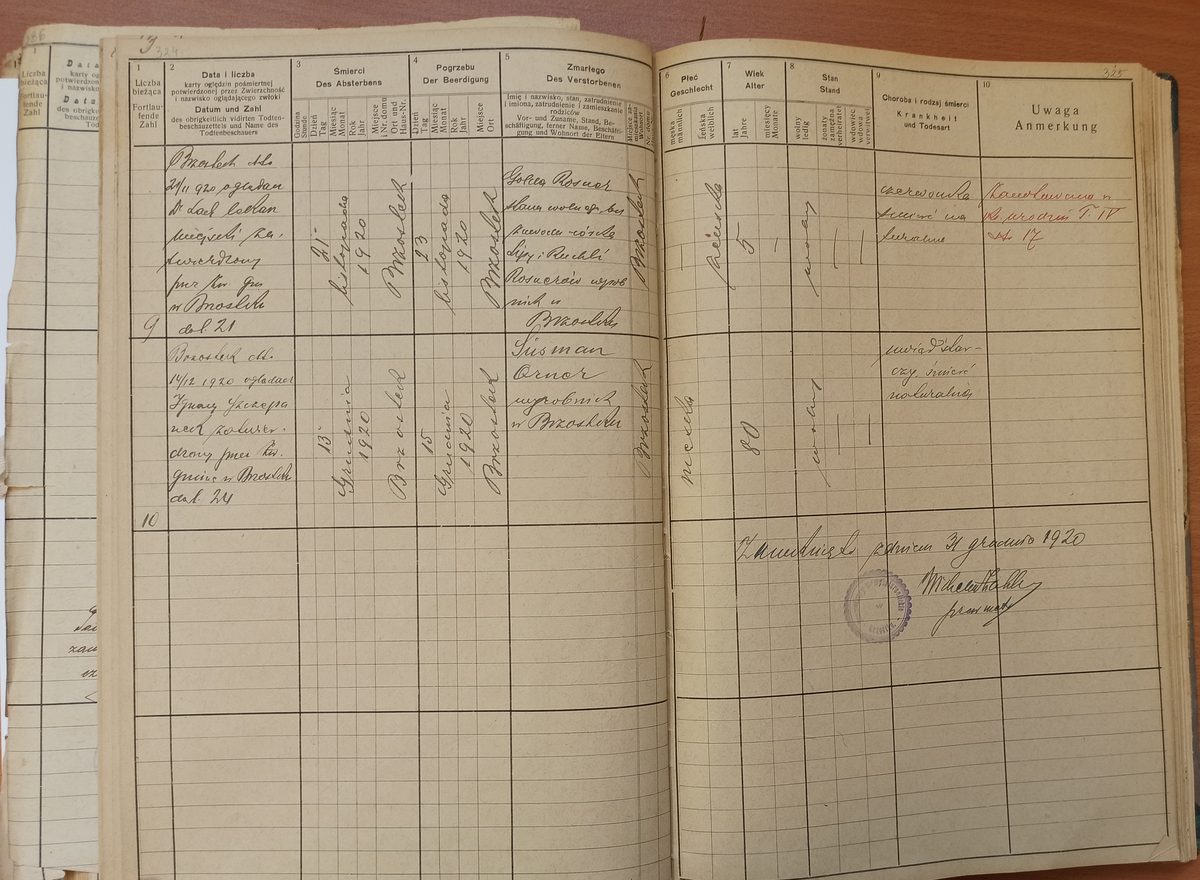 324
1
Liczba
bieżąca
Fortlau-
fende
Zahl
2
Data i liczba
karty oględzin pośmiertnej
potwierdzonej przez Zwierzchność
i nazwisko oglądającego zwłoki
Datum und Zahl
des obrigkeitlich vidirten Todten-
beschauzettels und Name des
Todtenbeschauers
3
Śmierci
Des Absterbens
Godzina
Stunde
Dzień
Tag
Miesiąc
Monat
Rok
Jahr
Miejsce
i Nr. domu
Ort und
Haus-Nr.
4
Pogrzebu
Der Beerdigung
Dzień
Tag
Miesiąc
Monat
Rok
Jahr
Miejsce
Ort
5
Zmarłego
Des Verstorbenen
Imię i nazwisko, stan, zatrudnienie
i imiona, zatrudnienie i zamieszkanie
rodziców
Vor- und Zuname, Stand, Be-
schäftigung, ferner Name, Beschäfti-
gung und Wohnort der Eltern
9
Brzostek dto
21/11 1920 oglądan
Dr
miejski za-
twierdzony
przez
w Brzostku
dnl. 21
21
listopada
1920
Brzostek
23
listopada
1920
Brzostek
Golda Rosner
stanu wolnego bez
zawodu córka
i Ruchli
Rosnerów wyrob
nich w
Brzostku
Brzostek
10
Brzostek dto
14/12 1920 oglądacz
Ignacy Szczepa
nek zatwier-
dzony przez
gminę w Brzostku
dnl. 24
13
Grudnia
1920
Brzostek
15
Grudnia
1920
Brzostek
Süsman
Orner
wyrobnik
w Brzostku
Brzostek
325
6
Płeć
Geschlecht
męska
männlich
żeńska
weiblich
7
Wiek
Alter
lat
Jahre
miesięcy
Monate
8
Stan
Stand
wolny
ledig
żonaty
zamężna
verheiratet
wdowiec
wdowa
verwitwet
9
Choroba i rodzaj śmierci
Krankheit
und Todesart
10
Uwaga
Anmerkung
żeńska
5
wolny
czerwonka
śmierć na
turalna
ks. urodzin T IV
str 17
męska
80
wolny
uwiąd star-
czy śmierć
naturalna
Zamknięto z dniem 31 grudnia 1920
Wilhelm